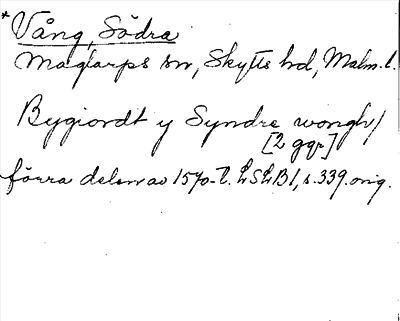 * Vång, Södra
Maglarps sn, Skytts hd, Malm. l.
Bygiordt y Syndre wongh/
[2 ggr]
förra delen av 1570-t. LSLB1, s. 339. orig.